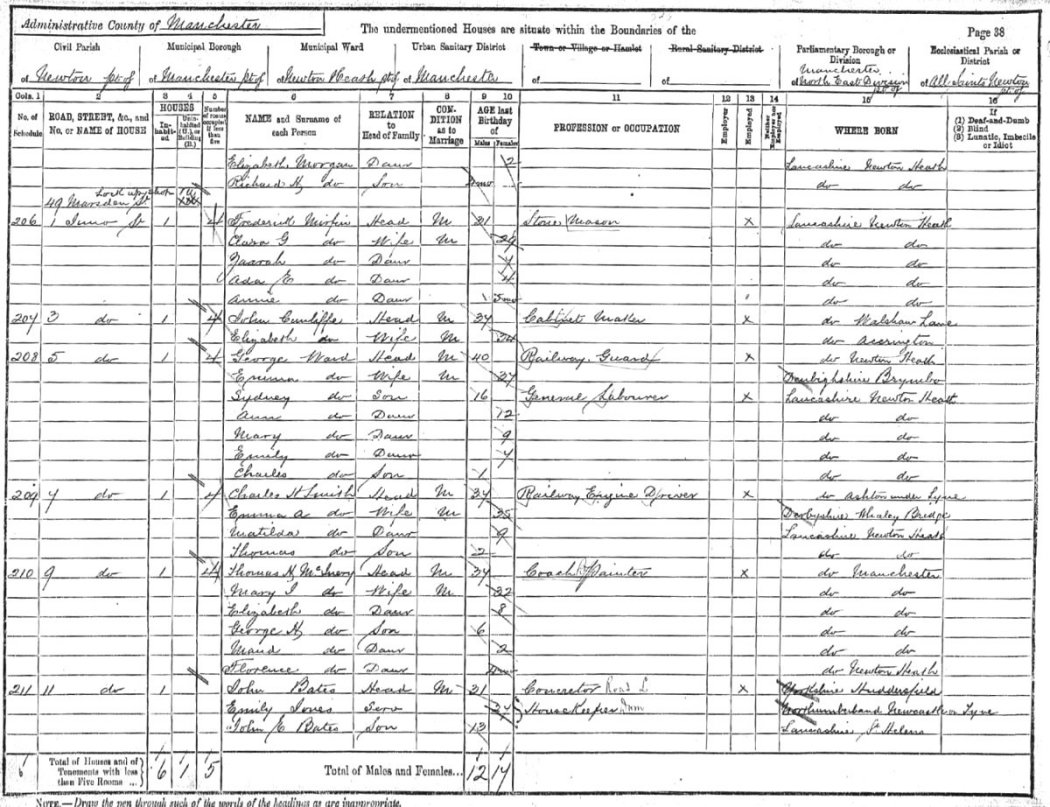 Administrative County of Manchester
The undermentioned Houses are situate within the Boundaries of the
Page 38
Civil Parish Municipal Borough Municipal Ward Urban Sanitary District Town or Village or Hamlet Rural Sanitary District Parliamentary Borough or Division Ecclesiastical Parish or District
of Newton pt of of Manchester pt of of Newton Heath pt of of Manchester of of of Manchester North East Division pt of of All Saints Newton pt of
Cols. 1 2 3 4 5 6 7 8 9 10 11 12 13 14 15 16
No. of Schedule ROAD, STREET, &c., and No. or NAME of HOUSE HOUSES Inhabited Uninhabited (U.), or Building (B.) Number of rooms occupied if less than five NAME and Surname of each Person RELATION to Head of Family CONDITION as to Marriage AGE last Birthday of Males Females PROFESSION or OCCUPATION Employer Employed Neither Employer nor Employed WHERE BORN If (1) Deaf-and-Dumb (2) Blind (3) Lunatic, Imbecile or Idiot
Elizabeth Morgan Daur 2 Lancashire Newton Heath
Richard H do Son mo do do
49 Marsden St Lock up shop 1 U
206 1 Juno St 1 4 Frederick Mirfin Head M 31 Stone Mason x Lancashire Newton Heath
Clara G do Wife M 29 do do
do Daur 7 do do
Ada E do Daur 4 do do
Annie do Daur 5mo do do
207 3 do 1 4 John Cunliffe Head M 37 Cabinet Maker x do Walshaw Lane
Elizabeth do Wife M 34 do Accrington
208 5 do 1 4 George Ward Head M 40 Railway Guard x do Newton Heath
Emma do Wife M 37 Denbighshire Brymbo
Sydney do Son 16 General Labourer x Lancashire Newton Heath
Ann do Daur 12 do do
Mary do Daur 9 do do
Emily do Daur 7 do do
Charles do Son 1 do do
209 7 do 1 4 Charles H Smith Head M 37 Railway Engine Driver x do Ashton under Lyne
Emma A do Wife M 35 Derbyshire Whaley Bridge
Matilda do Daur 9 Lancashire Newton Heath
Thomas do Son 2 do do
210 9 do 1 4 Thomas H McInery Head M 37 Coach Painter x do Manchester
Mary J do Wife M 32 do do
Elizabeth do Daur 8 do do
George H do Son 6 do do
Maud do Daur 2 do do
Florence do Daur mo do Newton Heath
211 11 do 1 John Bates Head M 31 Road L x Yorkshire Huddersfield
Emily Jones Serv 27 Housekeeper Dom Northumberland Newcastle on Tyne
John E Bates Son 13 Lancashire St Helens
6 Total of Houses and of Tenements with less than Five Rooms ... 6 1 5 Total of Males and Females... 12 14
NOTE.—Draw the pen through such of the words of the headings as are inappropriate.